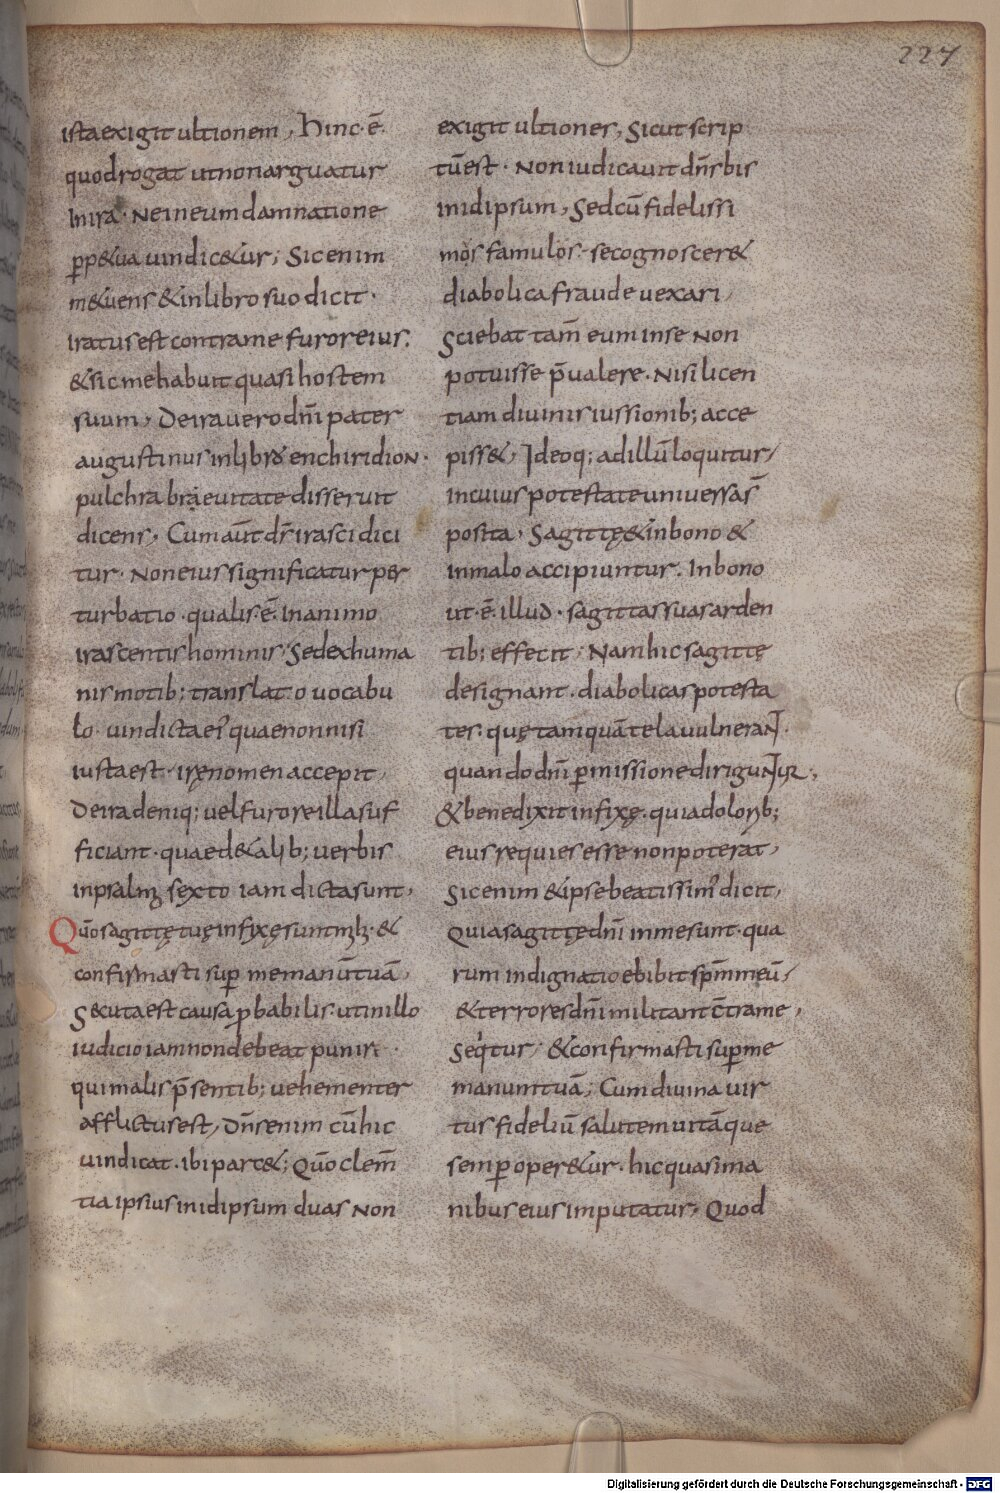 227
ista exigit ultionem, Hinc·ē·
quod rogat ut non arguatur
In ira· Ne in eum damnatione
ꝑp&ua uindic&ur; Sic enim
m&uens & in libro suo dicit·
Iratus est contra me furor eius:
& sic me habuit quasi hostem
suum, De ira uero dñi pater
augustinus in libro enchiridion·
pulchra breuitate disseruit
dicens, Cum aūt dr̄ irasci dici
tur· Non eius significatur per
turbatio· qualis ē· In animo
irascentis hominis, Sed ex huma
nis motib; translato uocabu
lo· uindicta ei' quae non nisi
iusta est· irę nomen accepit,
De ira deniq; uel furore illa suf
ficiant· quae d& alib; uerbis
in psalmo sexto iam dicta sunt,
Quō sagittę tuę infixę sunt mihi· &
confirmasti suꝑ me manū tuā,
Secuta est causa ꝓbabilis· ut in illo
iudicio iam non debeat puniri·
qui malis p̄sentib; uehementer
afflictus est, Dn̄s enim cū hic
uindicat· ibi parc&; Quō clem̄
tia ipsius in id ipsum duas non
exigit ultiones, Sicut scrip
tū est· Non iudicauit dn̄s bis
in id ipsum, Sed cū fidelissi
mos famulos· se cognoscer&
diabolica fraude uexari,
Sciebat tam̄ eum in se Non
potuisse p̄ualere· Nisi licen
tiam diuinis iussionib; acce
piss&, Ideoq; ad illū loquitur,
in cuius potestate uniuersa s̄
posita, Sagittę & in bono &
in malo accipiuntur. In bono
ut· ē· illud· sagittas suas arden
tib; effecit, Nam hic sagittę
designant· diabolicas potesta
tes· quę tamquā tela uulnerant·
quando dn̄i ꝑmissione diriguntur,
& bene dixit infixę· quia dolorib;
eius requies esse non poterat,
Sic enim & ipse beatissim' dicit,
Quia sagittę dn̄i in me sunt· qua
rum indignatio ebibit sp̄m meū,
& terrores dn̄i militant c̄tra me,
Seq̇tur, & confirmasti suꝑ me
manum tuā, Cum diuina uir
tus fideliū salutem uitāque
semꝑ oper&ur· hic quasi ma
nibus eius imputatur, Quod
Digitalisierung gefördert durch die Deutsche Forschungsgemeinschaft - DFG